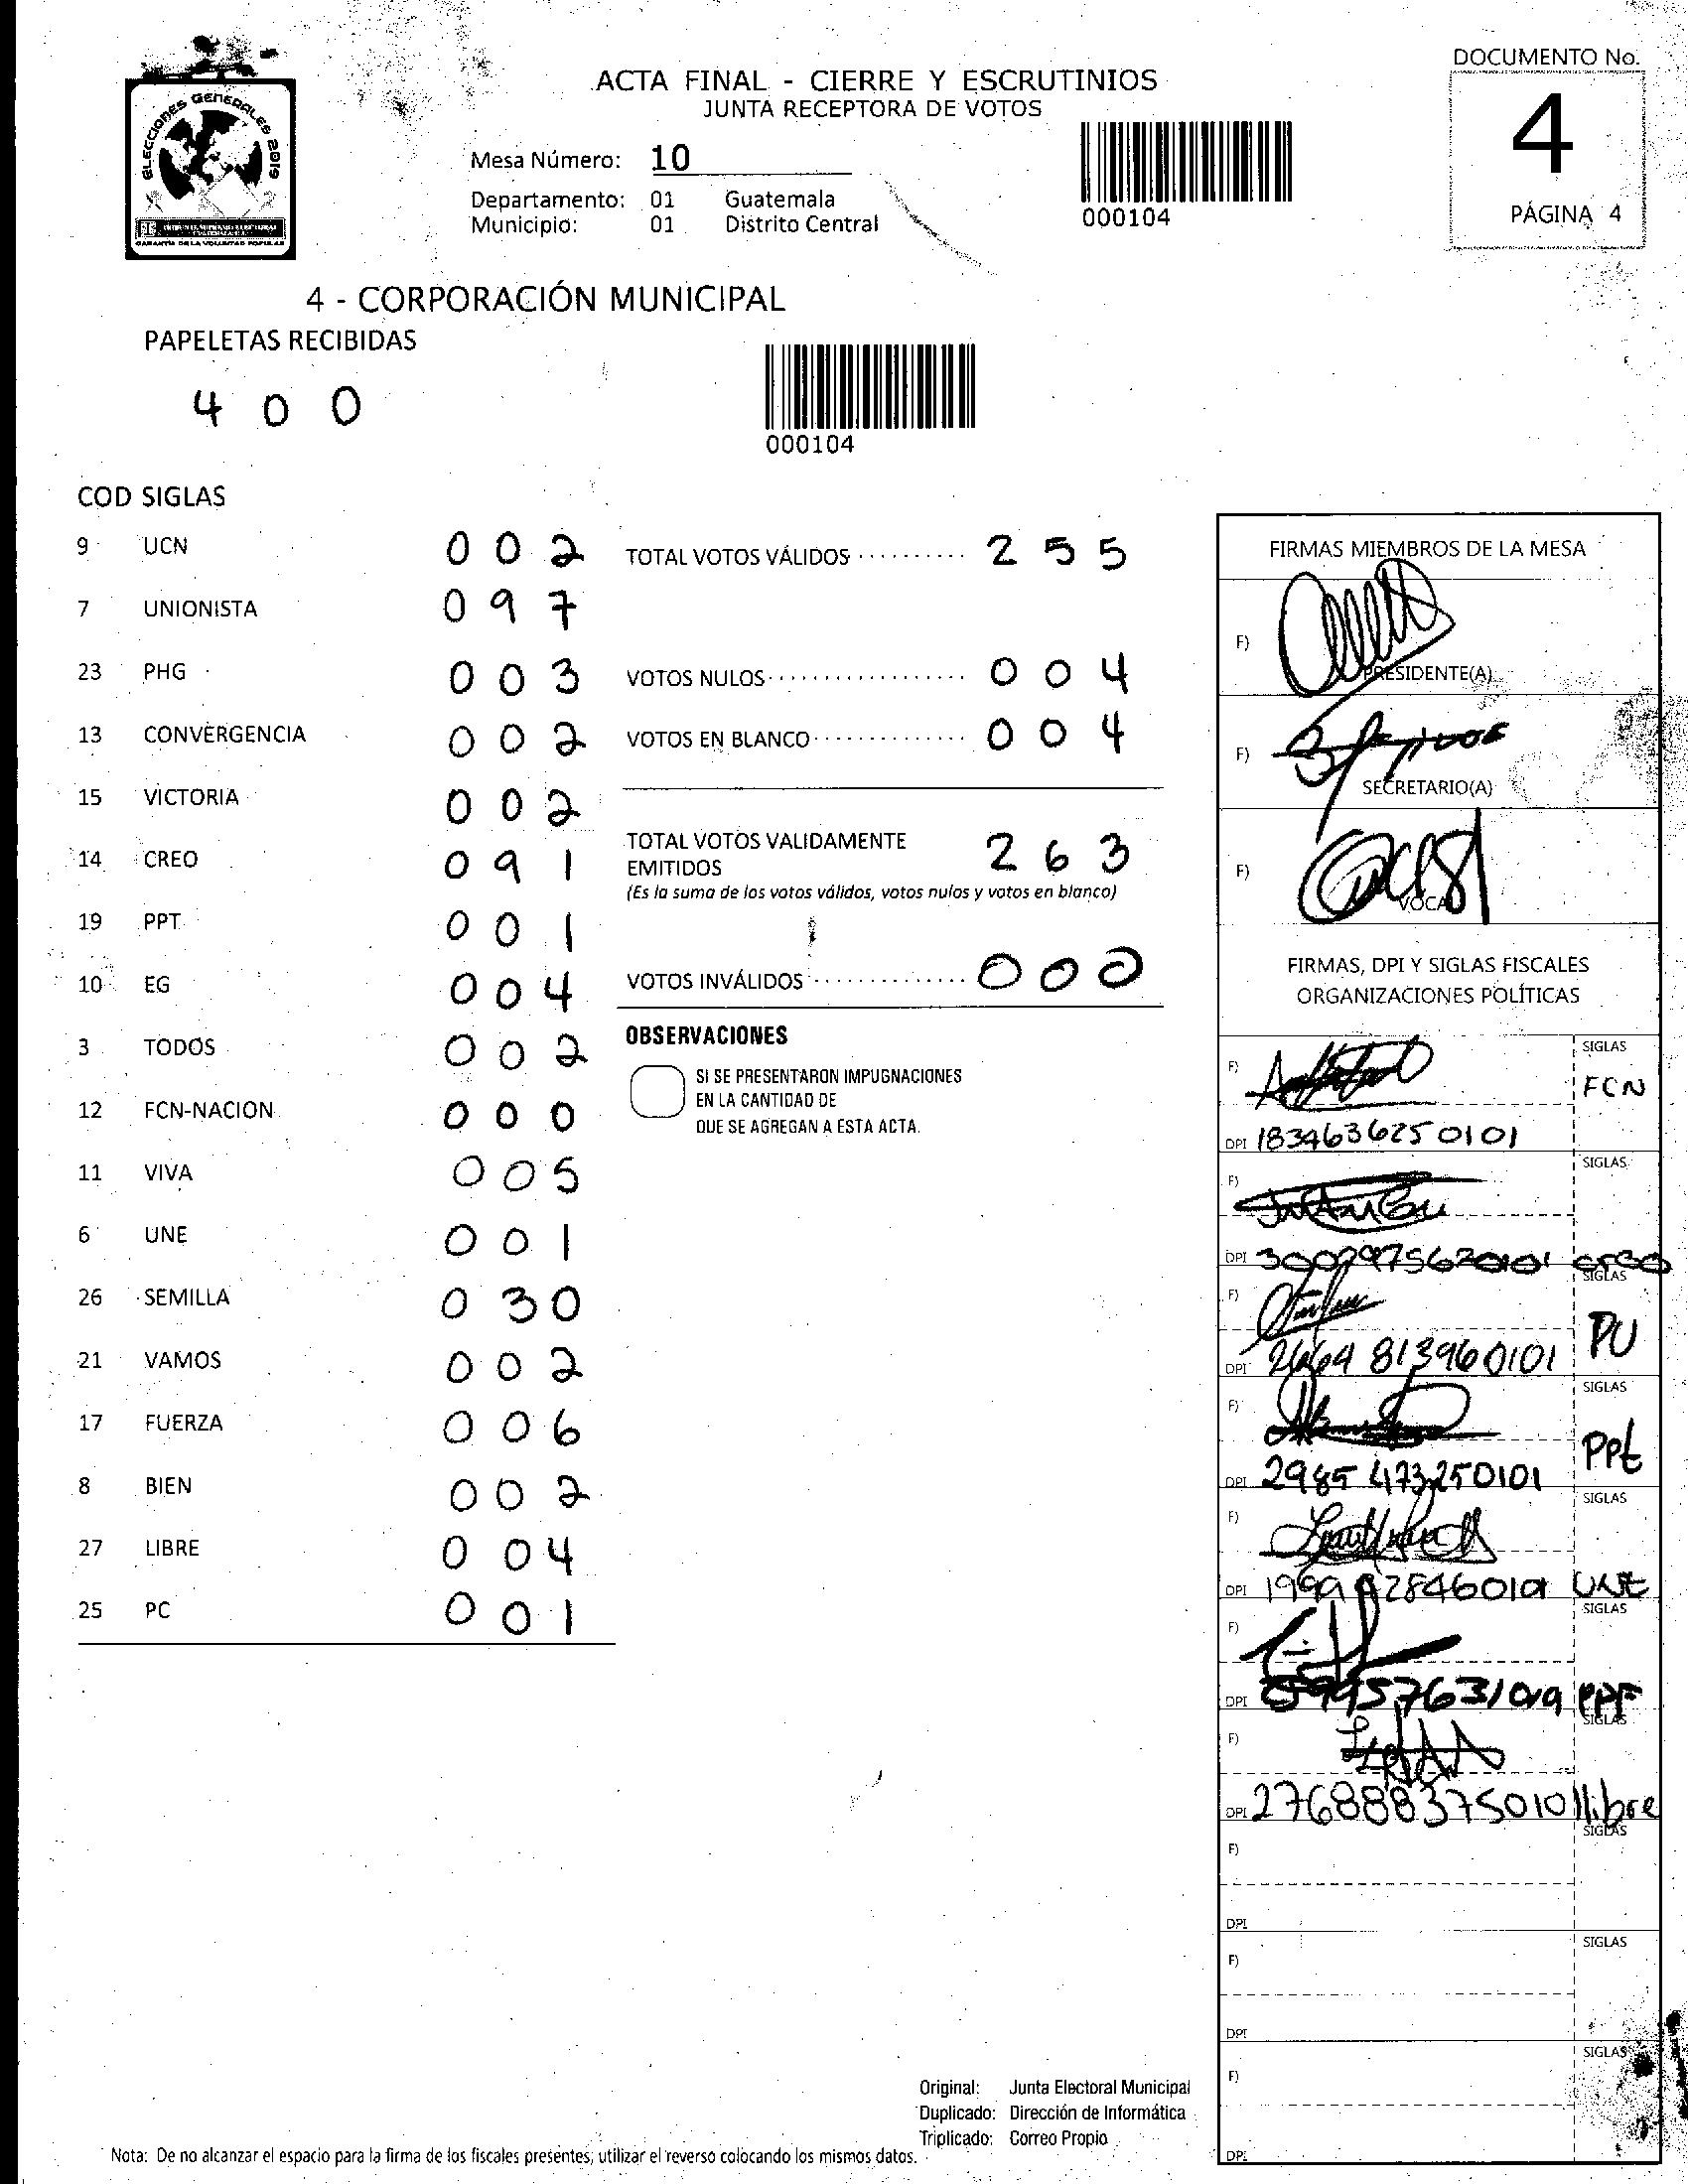 DOCUMENTO No.
4
PÁGINA 4
ELECCIONES GENERALES 2019
TRIBUNAL SUPREMO ELECTORAL
GUATEMALA, C.A.
GARANTÍA DE LA VOLUNTAD POPULAR
ACTA FINAL - CIERRE Y ESCRUTINIOS
JUNTA RECEPTORA DE VOTOS
Mesa Número: 10
Departamento: 01 Guatemala
Municipio: 01 Distrito Central
000104
4 - CORPORACIÓN MUNICIPAL
PAPELETAS RECIBIDAS
4 0 0
000104
COD SIGLAS
9 UCN 0 0 2
7 UNIONISTA 0 9 7
23 PHG 0 0 3
13 CONVERGENCIA 0 0 2
15 VICTORIA 0 0 2
14 CREO 0 9 1
19 PPT 0 0 1
10 EG 0 0 4
3 TODOS 0 0 2
12 FCN-NACION 0 0 0
11 VIVA 0 0 5
6 UNE 0 0 1
26 SEMILLA 0 3 0
21 VAMOS 0 0 2
17 FUERZA 0 0 6
8 BIEN 0 0 2
27 LIBRE 0 0 4
25 PC 0 0 1
TOTAL VOTOS VÁLIDOS 2 5 5
VOTOS NULOS 0 0 4
VOTOS EN BLANCO 0 0 4
TOTAL VOTOS VALIDAMENTE
EMITIDOS 2 6 3
(Es la suma de los votos válidos, votos nulos y votos en blanco)
VOTOS INVÁLIDOS 0 0 0
OBSERVACIONES
SI SE PRESENTARON IMPUGNACIONES
EN LA CANTIDAD DE
QUE SE AGREGAN A ESTA ACTA.
FIRMAS MIEMBROS DE LA MESA
F)
PRESIDENTE(A)
F)
SECRETARIO(A)
F)
VOCAL
FIRMAS, DPI Y SIGLAS FISCALES
ORGANIZACIONES POLÍTICAS
F) SIGLAS
FCN
DPI 1834636250101
F) SIGLAS
DPI
F) SIGLAS
PU
DPI 2664 813960101
F) SIGLAS
Ppt
DPI 2985 473250101
F) SIGLAS
DPI UNE
F) SIGLAS
DPI
F) SIGLAS
DPI 2768883750101 libre
F) SIGLAS
DPI
F) SIGLAS
DPI
F) SIGLAS
DPI
Original: Junta Electoral Municipal
Duplicado: Dirección de Informática
Triplicado: Correo Propio
Nota: De no alcanzar el espacio para la firma de los fiscales presentes, utilizar el reverso colocando los mismos datos.